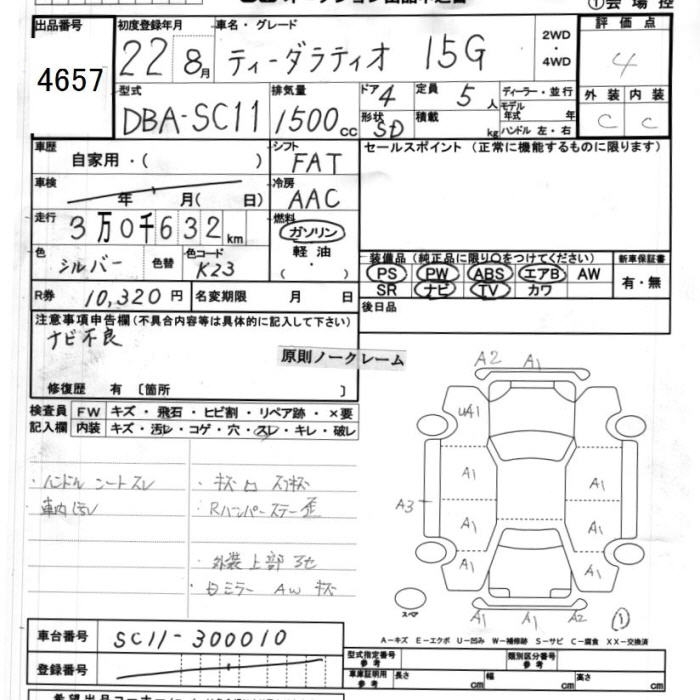 ①会場控
出品番号 4657
初度登録年月 22 8月
車名・グレード ティーダラティオ 15G
2WD・4WD
評価点 4
型式 DBA-SC11
排気量 1500cc
ドア 4
形状 SD
定員 5人
積載 kg
ディーラー・並行
モデル年式 年
ハンドル 左・右
外装 C 内装 C
車歴 自家用・( )
シフト FAT
セールスポイント (正常に機能するものに限ります)
車検 年 月( 日)
冷房 AAC
走行 3万0千632km
燃料 ガソリン・軽油・( )
色 シルバー 色替
色コード K23
装備品(純正品に限り○をつけてください)
PS PW ABS エアB AW
SR ナビ TV カワ
新車保証書 有・無
R券 10,320円
名変期限 月 日
後日品
注意事項申告欄(不具合内容等は具体的に記入して下さい)
ナビ不良
原則ノークレーム
修復歴 有 〔箇所 〕
検査員記入欄
FW キズ・飛石・ヒビ割・リペア跡・×要
内装 キズ・汚レ・コゲ・穴・スレ・キレ・破レ
・ハンドル シートスレ
・車内汚レ
・Rバンパーステー歪
・外装上部
・ミラー AW キズ
A2 A1
UA1
A1 A1
A3
A1 A1
A1 A1
スペア
A1 A1 A2
①
A-キズ E-エクボ U-凹み W-補修跡 S-サビ C-腐食 XX-交換済
車台番号 SC11-300010
登録番号
型式指定番号 参考
類別区分番号 参考
車庫証明用 参考 長さ cm 幅 cm 高さ cm